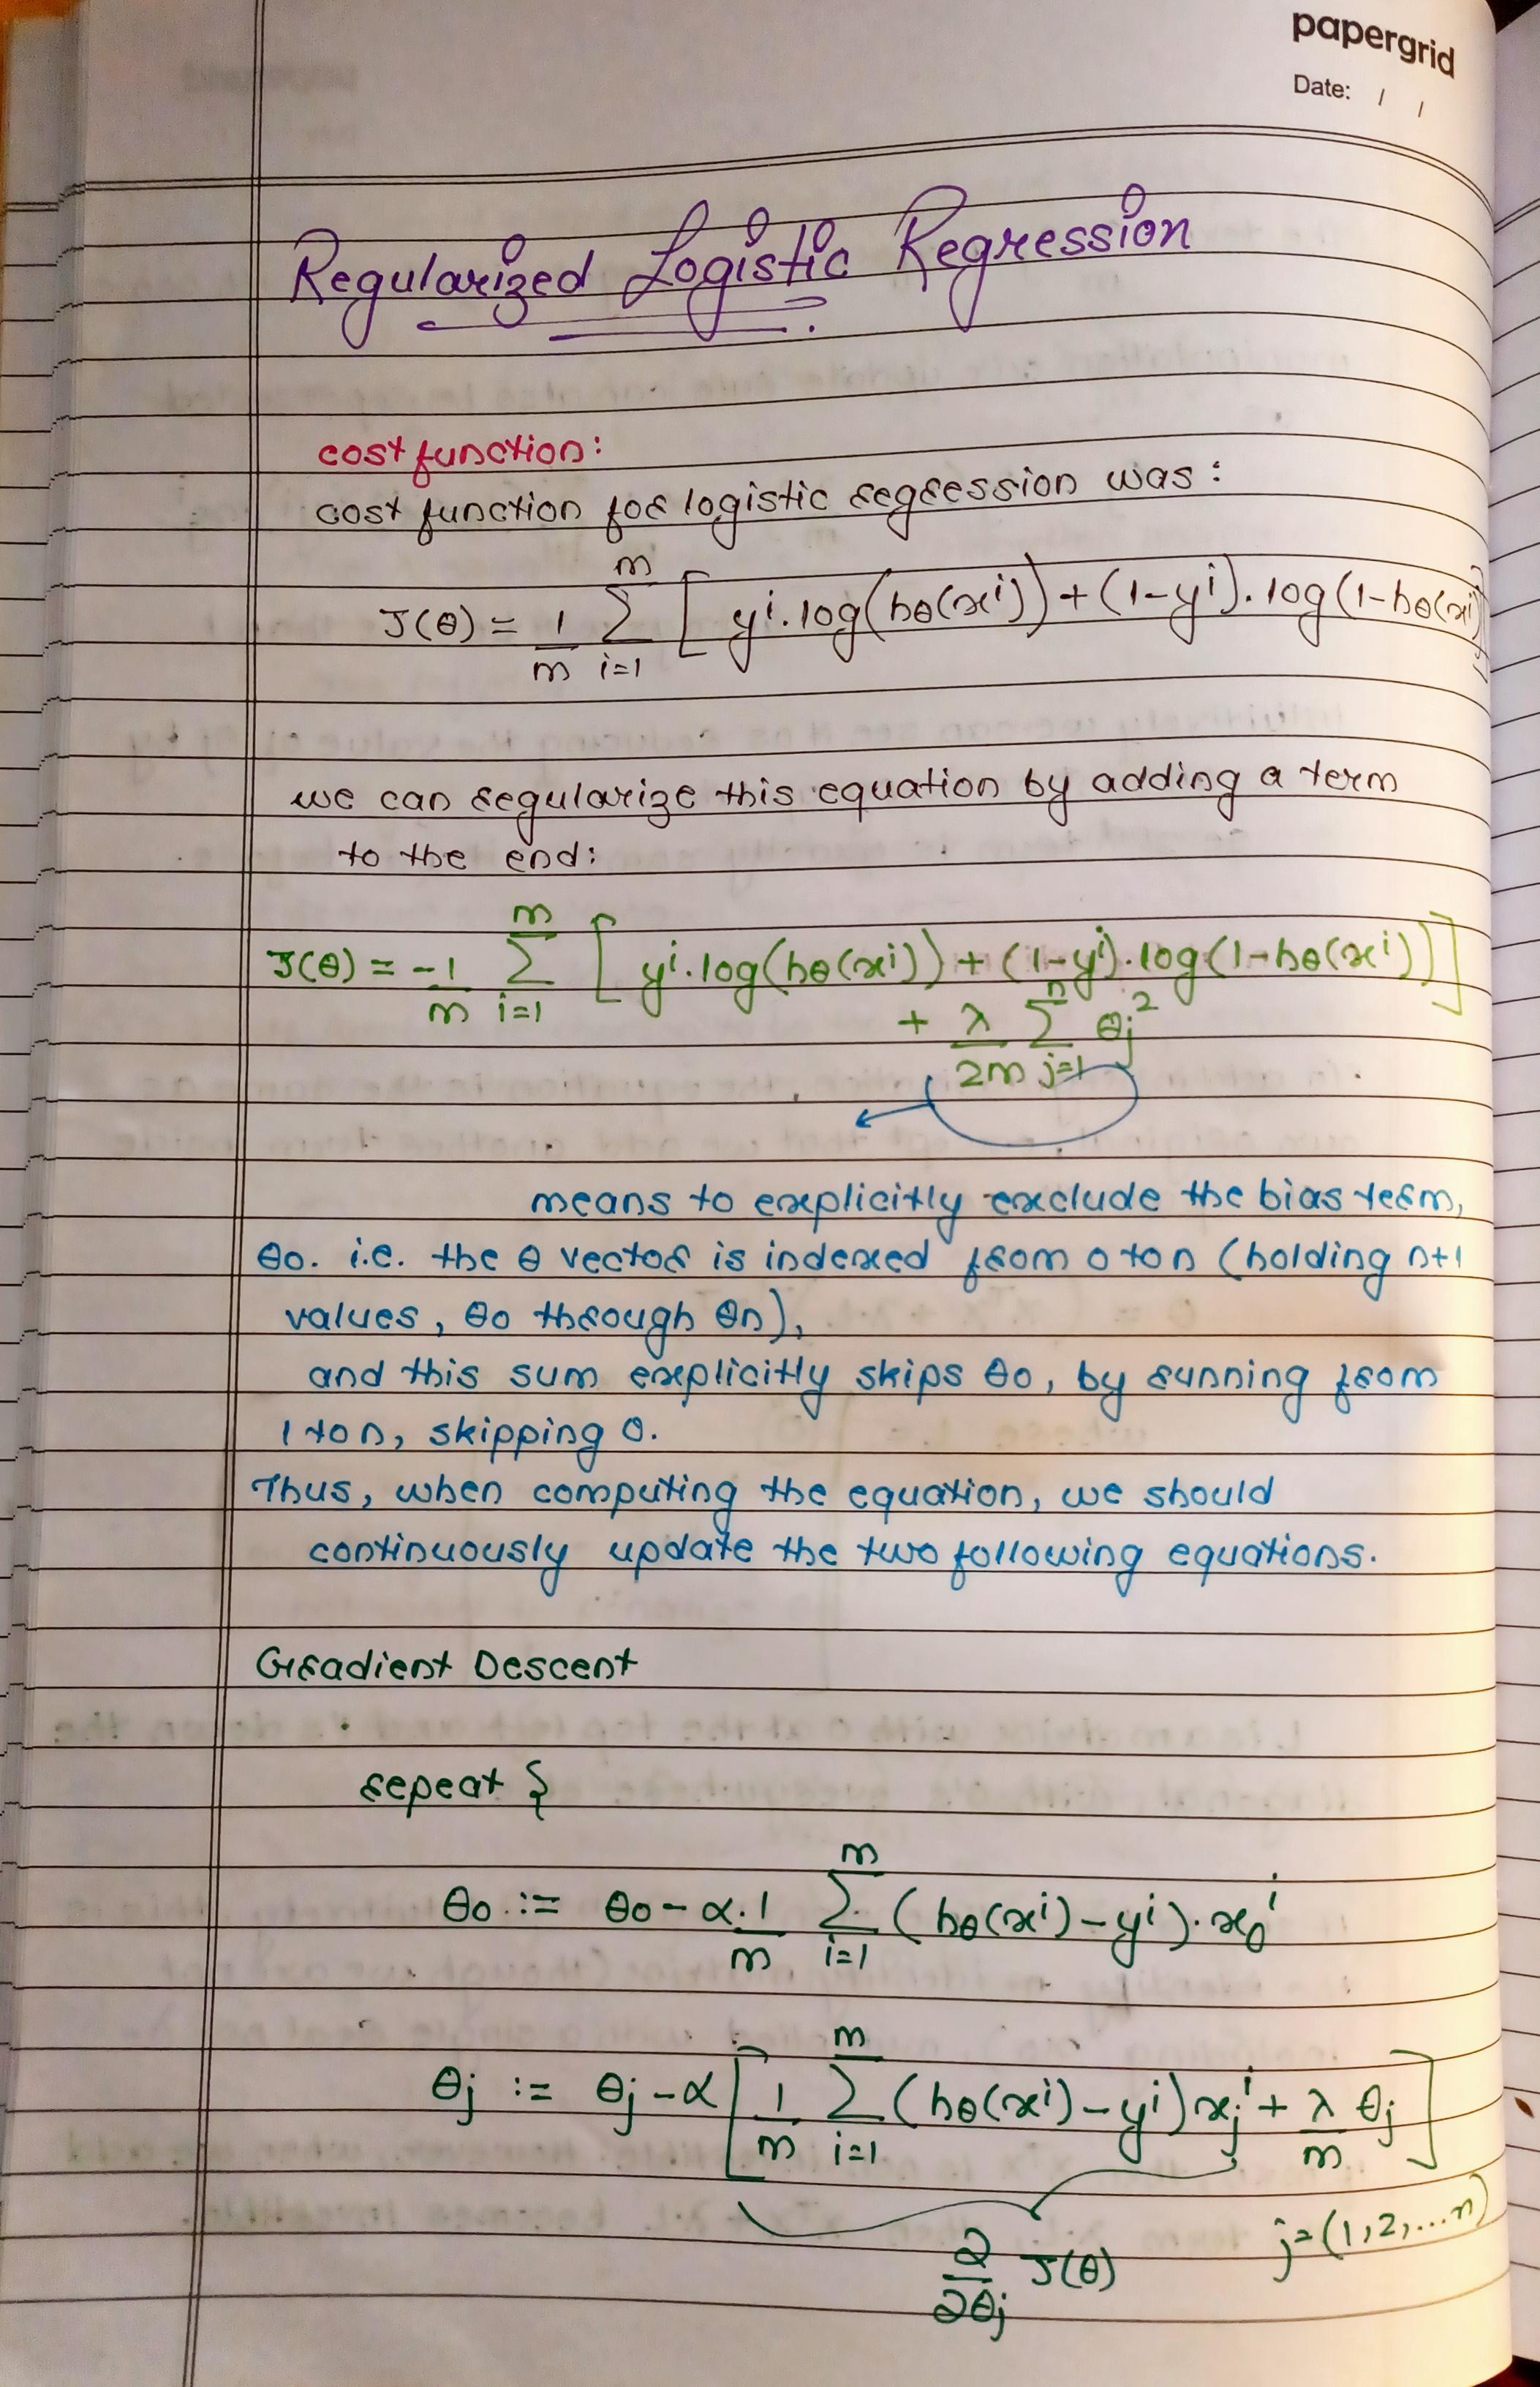 papergrid
Date: / /
Regularized Logistic Regression
cost function:
cost function for logistic regression was:
J(θ) = 1/m Σ_{i=1}^{m} [ yⁱ.log(hθ(xⁱ)) + (1-yⁱ).log(1-hθ(xⁱ))]
we can regularize this equation by adding a term
to the end:
J(θ) = -1/m Σ_{i=1}^{m} [ yⁱ.log(hθ(xⁱ)) + (1-yⁱ).log(1-hθ(xⁱ))]
+ λ/2m Σ_{j=1}^{n} θj²
means to explicitly exclude the bias term,
θ0. i.e. the θ vector is indexed from 0 to n (holding n+1
values, θ0 through θn),
and this sum explicitly skips θ0, by running from
1 to n, skipping 0.
Thus, when computing the equation, we should
continuously update the two following equations.
Gradient Descent
repeat {
θ0 := θ0 - α.1/m Σ_{i=1}^{m} (hθ(xⁱ)-yⁱ).x0ⁱ
θj := θj - α[1/m Σ_{i=1}^{m} (hθ(xⁱ)-yⁱ)xjⁱ + λ/m θj]
∂/∂θj J(θ) j=(1,2,...n)